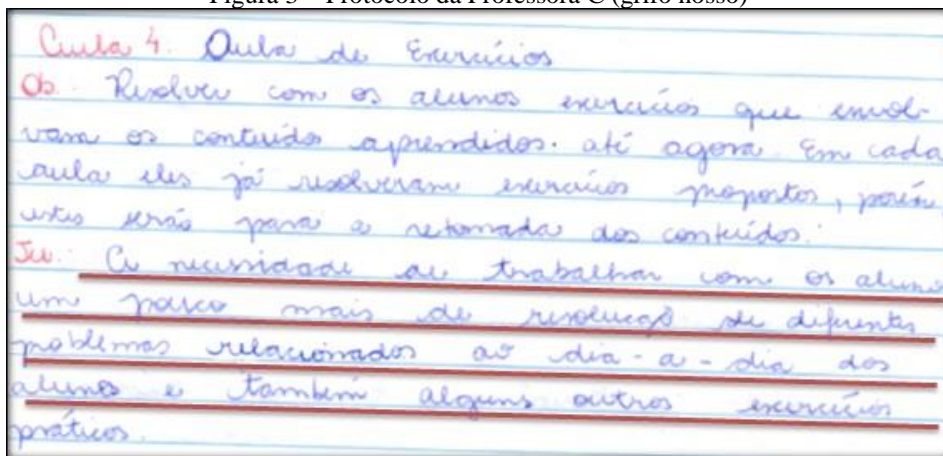 Figura 5 – Protocolo da Professora C (grifo nosso)
Aula 4. Aula de Exercícios
Ob. Resolver com os alunos exercícios que envol-
vam os conteúdos aprendidos. até agora. Em cada
aula eles já resolveram exercícios propostos, porém
estes serão para a retomada dos conteúdos.
Ju. A necessidade de trabalhar com os aluno
um pouco mais de resolução de diferentes
problemas relacionados ao dia-a-dia dos
alunos e também alguns outros exercícios
práticos.